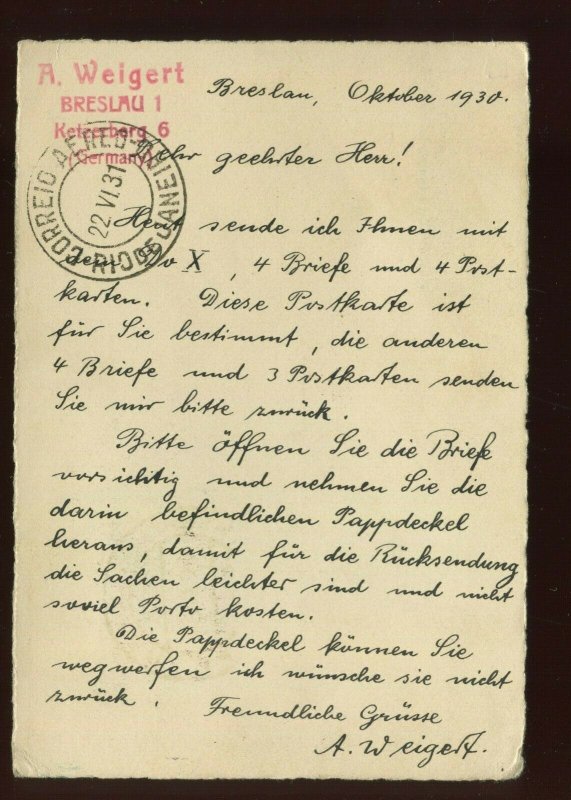 A. Weigert
BRESLAU 1
Ketzerberg 6
(Germany)
CORREIO AEREO
RIO DE JANEIRO
22.VI.31
Breslau, Oktober 1930.
Sehr geehrter Herr!
Heut sende ich Ihnen mit
dem Do X, 4 Briefe und 4 Post-
karten. Diese Postkarte ist
für Sie bestimmt, die anderen
4 Briefe und 3 Postkarten senden
Sie mir bitte zurück.
Bitte öffnen Sie die Briefe
vorsichtig und nehmen Sie die
darin befindlichen Pappdeckel
heraus, damit für die Rücksendung
die Sachen leichter sind und nicht
soviel Porto kosten.
Die Pappdeckel können Sie
wegwerfen ich wünsche sie nicht
zurück. Freundliche Grüsse
A. Weigert.